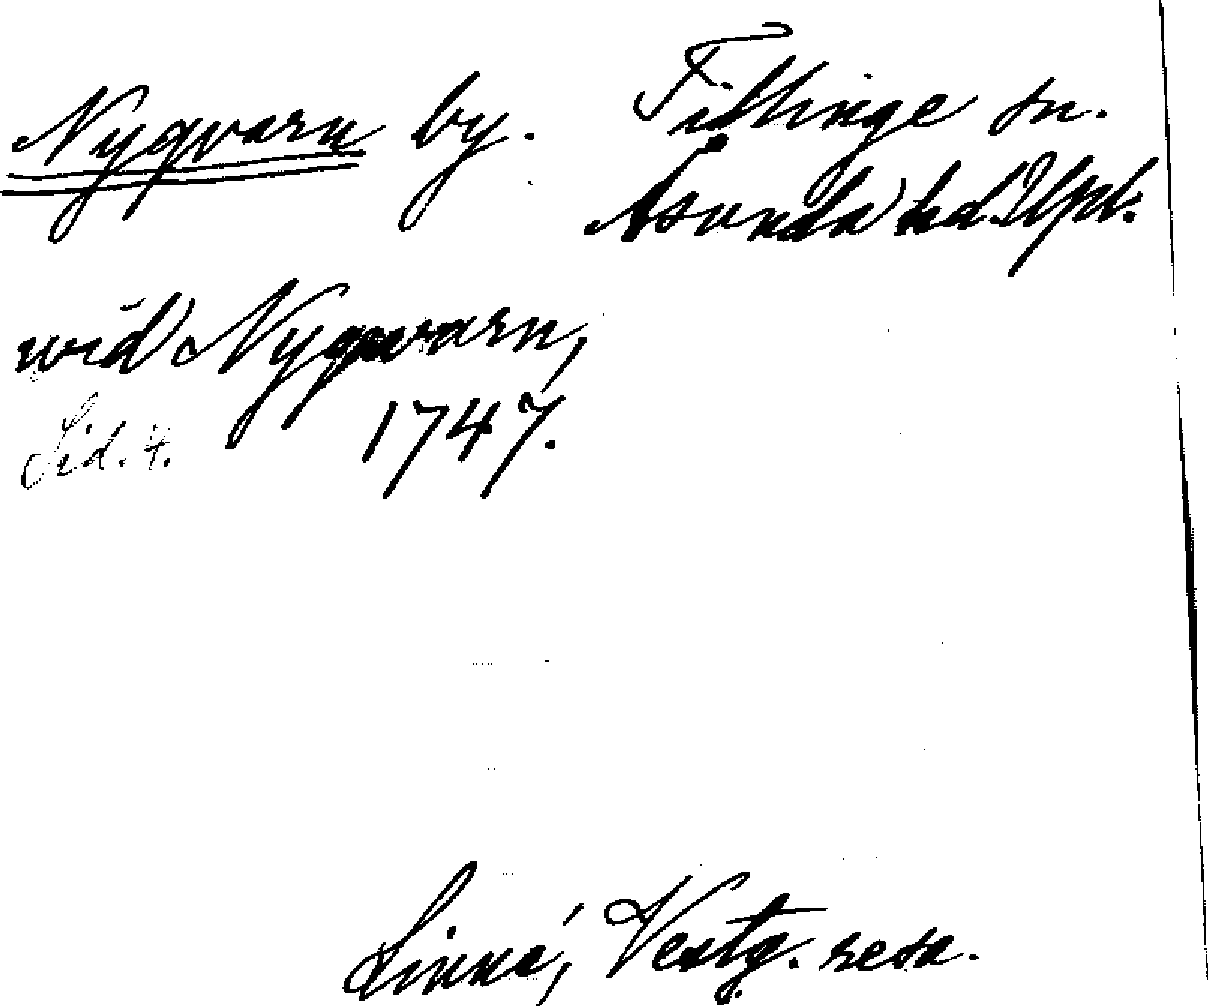 Nyqvarn by. Tillinge sn.
Åsunda hd. Upl.
wid Nyqwarn,
Sid. 4. 1747.
Linné, Vestg. resa.